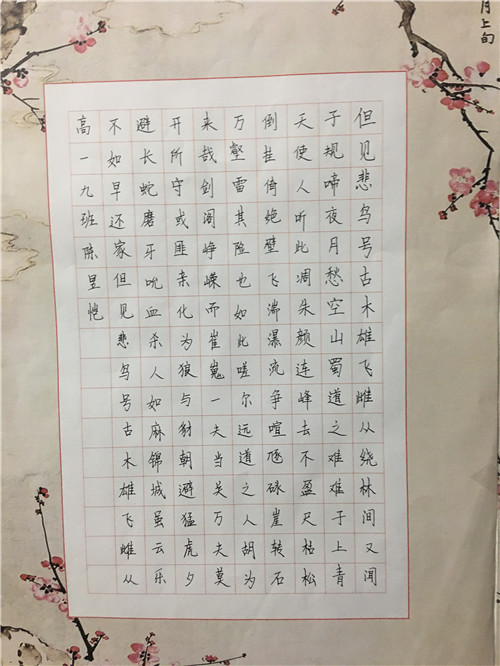 月上旬
但见悲鸟号古木雄飞雌从绕林间又闻
于规啼夜月愁空山蜀道之难难于上青
天使人听此凋朱颜连峰去不盈尺枯松
倒挂倚绝壁飞湍瀑流争喧豗砯崖转石
万壑雷其险也如此嗟尔远道之人胡为
来哉剑阁峥嵘而崔嵬一夫当关万夫莫
开所守或匪亲化为狼与豺朝避猛虎夕
避长蛇磨牙吮血杀人如麻锦城虽云乐
不如早还家但见悲鸟号古木雄飞雌从
高一九班陈昱恺